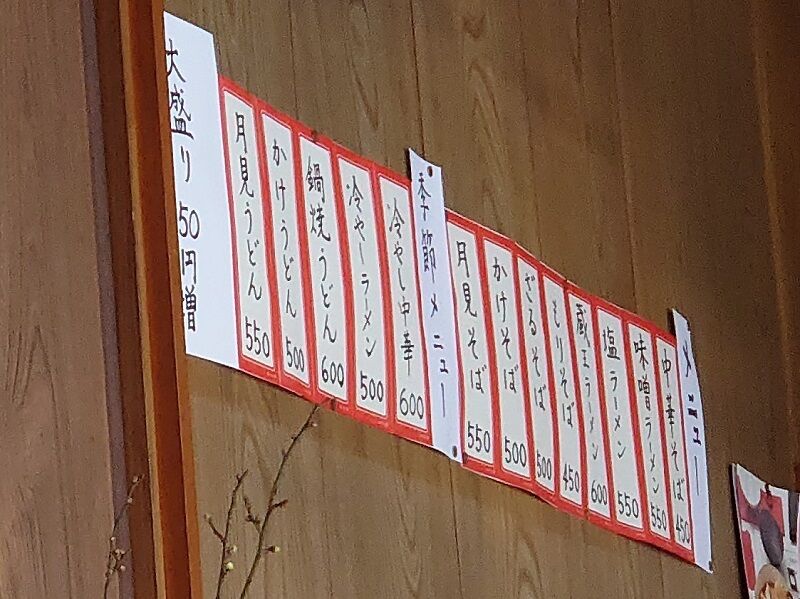 メニュー
中華そば 450
味噌ラーメン 550
塩ラーメン 550
蔵王ラーメン 600
もりそば 450
ざるそば 500
かけそば 500
月見そば 550
季節メニュー
冷やし中華 600
冷やしラーメン 500
鍋焼うどん 600
かけうどん 500
月見うどん 550
大盛り 50円増